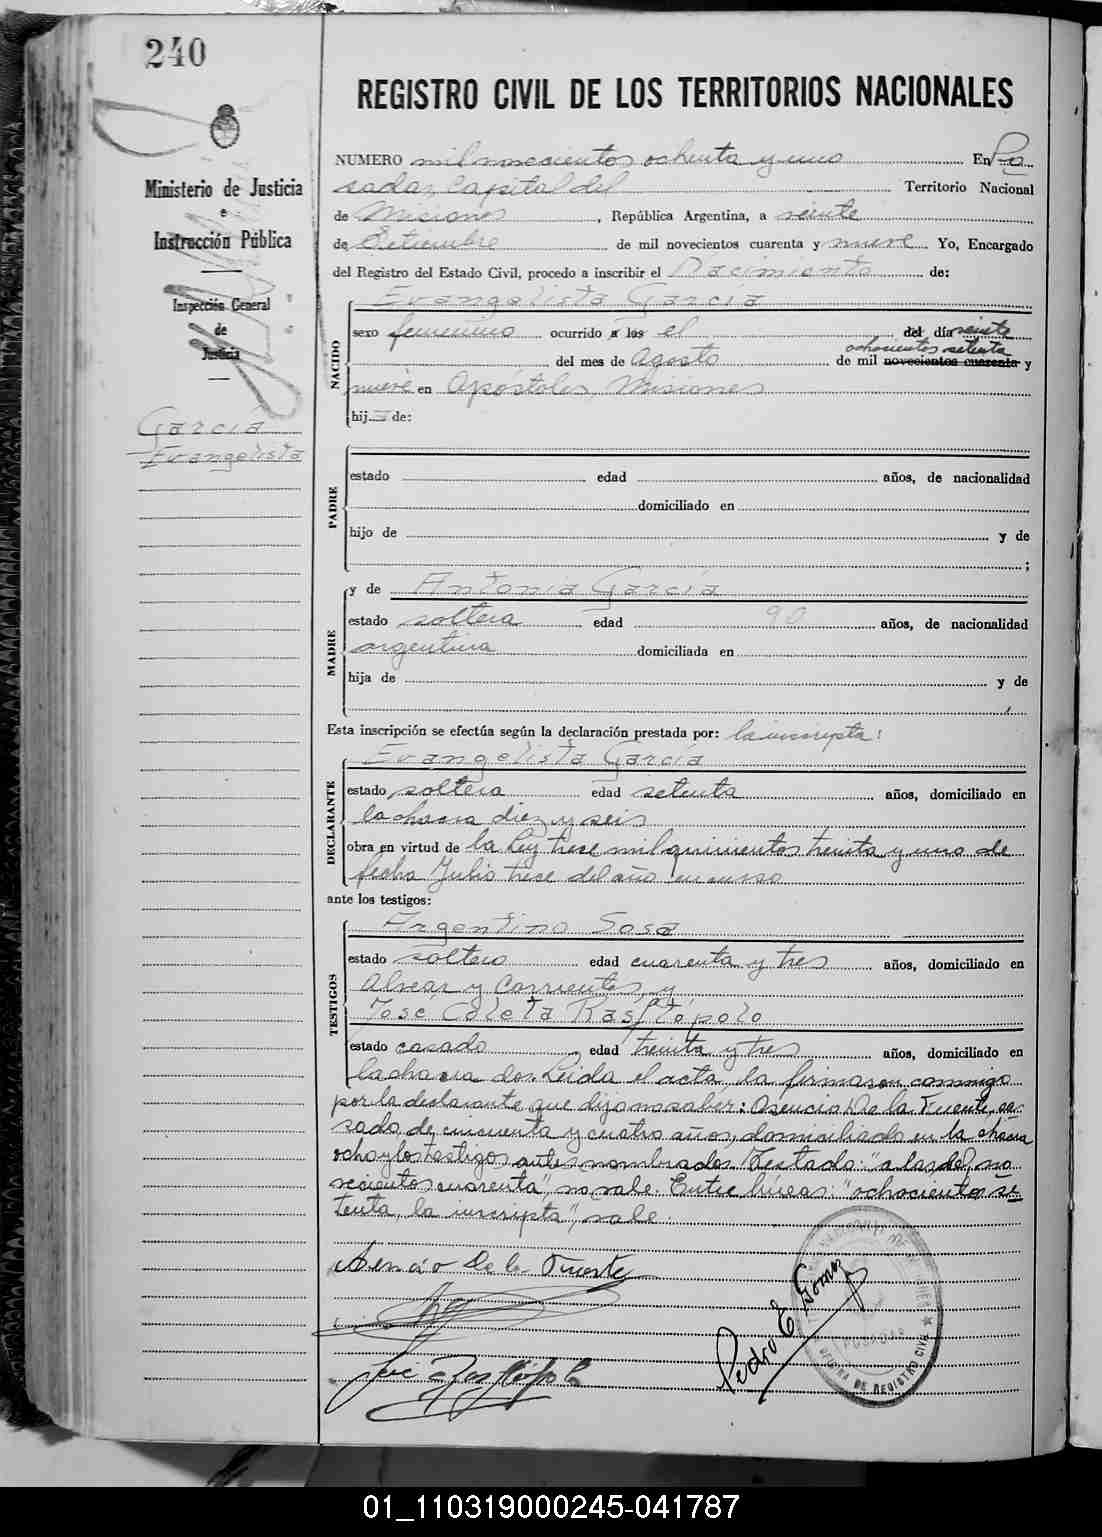 240
Ministerio de Justicia
e
Instrucción Pública
Inspección General
de
Justicia
García
Evangelista
REGISTRO CIVIL DE LOS TERRITORIOS NACIONALES
NUMERO mil novecientos ochenta y uno En Po
sadas, Capital del Territorio Nacional
de Misiones, República Argentina, a veinte
de Setiembre de mil novecientos cuarenta y nueve. Yo, Encargado
del Registro del Estado Civil, procedo a inscribir el Nacimiento de:
NACIDO
Evangelista García
sexo femenino ocurrido a las el del día veinte
ochocientos setenta
del mes de Agosto de mil novecientos cuarenta y
nueve en Apóstoles, Misiones
hij de:
PADRE
estado edad años, de nacionalidad
domiciliado en
hijo de y de
;
MADRE
y de Antonia García
estado soltera edad 90 años, de nacionalidad
argentina domiciliada en
hija de y de
Esta inscripción se efectúa según la declaración prestada por: la inscripta:
DECLARANTE
Evangelista García
estado soltera edad setenta años, domiciliado en
la chacra diez y seis
obra en virtud de la Ley trece mil quinientos treinta y uno de
fecha Julio trece del año en curso
ante los testigos:
TESTIGOS
Argentino Sosa
estado soltero edad cuarenta y tres años, domiciliado en
Alvear y Corrientes, y
José Coleta Rasftópolo
estado casado edad treinta y tres años, domiciliado en
la chacra dos. Leida el acta, la firmaron conmigo
por la declarante que dijo no saber: Asencio De la Fuente, ca-
sado, de cincuenta y cuatro años, domiciliado en la chacra
ocho y los testigos antes nombrados. Testado: "a las, del, no
vecientos cuarenta", no vale. Entre líneas: "ochocientos se-
tenta, la inscripta", vale.
Asencio De la Fuente
José
Pedro E. Gomez
POSADAS
OFICINA DE REGISTRO CIVIL
01_110319000245-041787